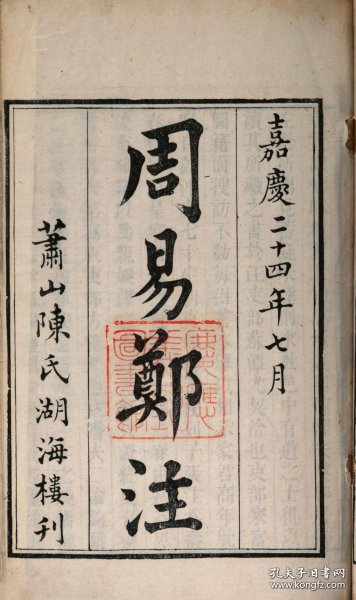 嘉慶二十四年七月
周易鄭注
蕭山陳氏湖海樓刊
孔夫子旧书网
www.kongfz.com